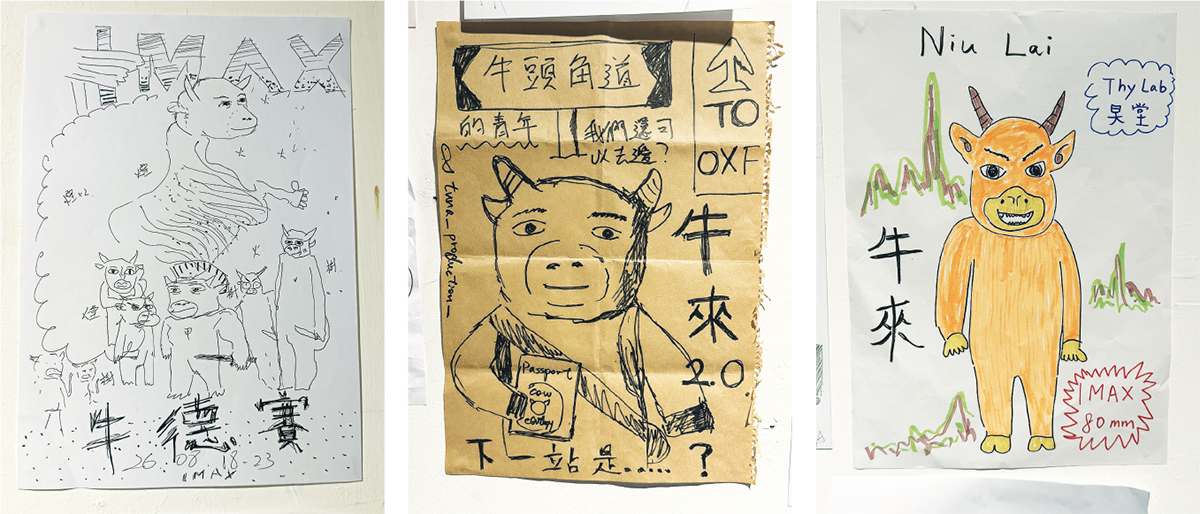 IMAX
煙x2
煙
火
樹
煙
甲
樹
牛德賽
26 08 18-23
IMAX
牛頭角道
的青年
我們還可
以去邊?
TO
OXF
tuna_production_
牛來
2.0
Passport
cow
下一站是......?
Niu Lai
Thy Lab
昊堂
牛來
IMAX
80mm